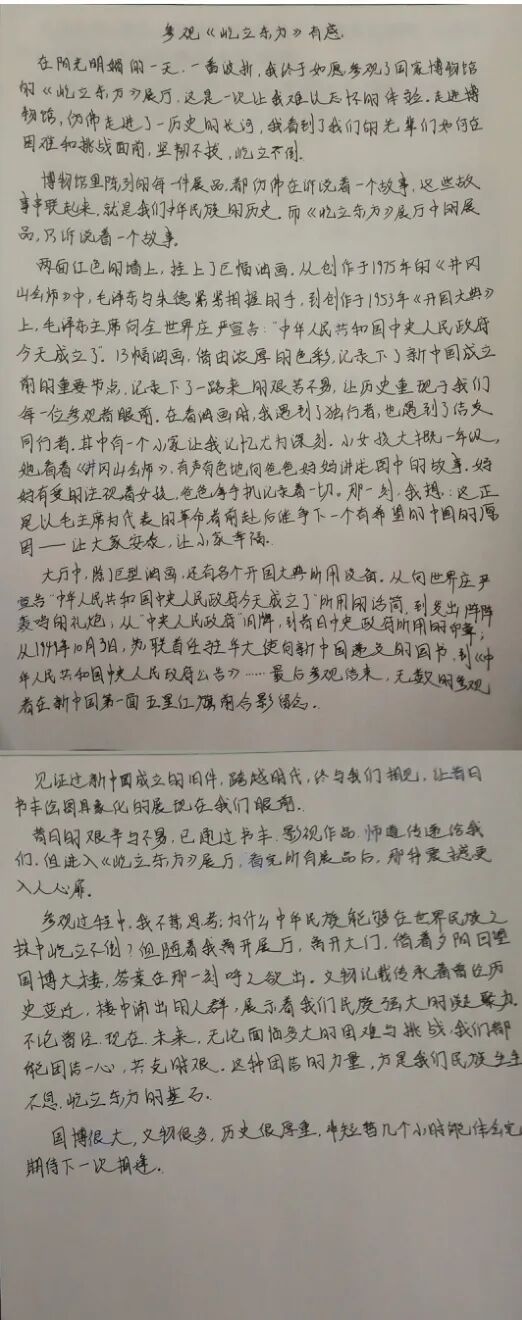 参观《屹立东方》有感.
在阳光明媚的一天.一番波折,我终于如愿参观了国家博物馆
的《屹立东方》展厅,这是一次让我难以忘怀的体验.走进博
物馆,仿佛走进了一历史的长河,我看到了我们的先辈们如何在
困难和挑战面前,坚韧不拔,屹立不倒.
博物馆里陈列的每一件展品,都仿佛在诉说着一个故事,这些故
事串联起来,就是我们中华民族的历史.而《屹立东方》展厅中的展
品,只诉说着一个故事.
两面红色的墙上,挂上了巨幅油画.从创作于1975年的《井冈
山会师》中,毛泽东与朱德紧紧相握的手,到创作于1953年《开国大典》
上,毛泽东主席向全世界庄严宣告:“中华人民共和国中央人民政府
今天成立了”.13幅油画,借由浓厚的色彩,记录下了新中国成立
前的重要节点,记录下了一路来的艰苦不易,让历史重现于我们
每一位参观者眼前.在看油画时,我遇到了独行者,也遇到了结友
同行者.其中有一个小家让我记忆尤为深刻.小女孩大概一年级,
她看着《井冈山会师》,有声有色地向爸爸妈妈讲述图中的故事.妈
妈有爱的注视着女孩,爸爸拿手机记录着一切.那一刻,我想:这正
是以毛主席为代表的革命者前赴后继争下一个有希望的中国的原
因——让大家安康,让小家幸福.
大厅中,除了巨型油画,还有各个开国大典所用设备.从向世界庄严
宣告“中华人民共和国中央人民政府今天成立了”所用的话筒,到发出阵阵
轰鸣的礼炮,从“中央人民政府”旧牌,到昔日中央政府所用的印章;
从1949年10月3日,苏联首任驻华大使向新中国递交的国书,到《中
华人民共和国中央人民政府公告》……最后参观结束,无数的参观
者在新中国第一面五星红旗前合影留念.
见证过新中国成立的旧件,跨越时代,终与我们相见,让昔日
书本绘图具象化的展现在我们眼前.
昔日的艰辛与不易,已通过书本.影视作品.师道传递给我
们.但进入《屹立东方》展厅,看完所有展品后,那种震撼更
入人心扉.
参观过程中,我不禁思考:为什么中华民族能够在世界民族之
林中屹立不倒?但随着我离开展厅,离开大门,借着夕阳回望
国博大楼,答案在那一刻呼之欲出.文物记载传承着曾经历
史变迁,楼中涌出的人群,展示着我们民族强大的凝聚力.
不论曾经.现在.未来,无论面临多大的困难与挑战,我们都
能团结一心,共克时艰.这种团结的力量,方是我们民族生生
不息.屹立东方的基石.
国博很大,文物很多,历史很厚重,非短暂几个小时能体会完
期待下一次相逢.